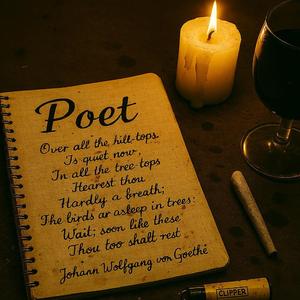 Poet
Over all the hill-tops
Is quiet now,
In all the tree-tops
Hearest thou
Hardly a breath;
The birds ar asleep in trees:
Wait; soon like these
Thou too shalt rest
Johann Wolfgang von Goethe
CLIPPER